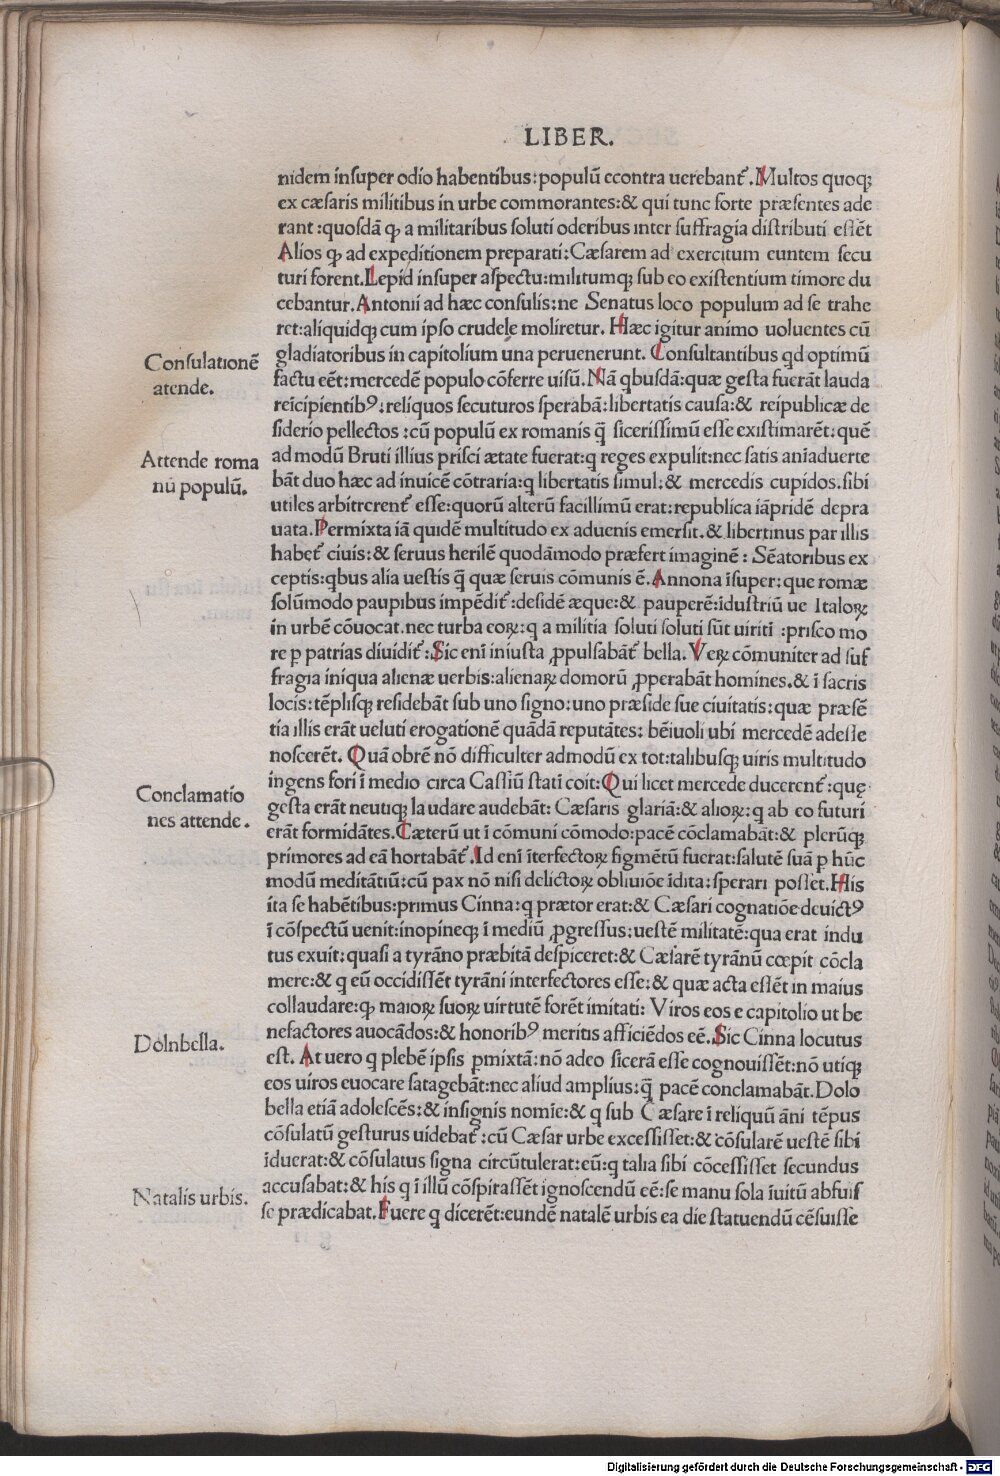 LIBER.
nidem insuper odio habentibus: populū econtra uerebant᷑. Multos quoq;
ex cæsaris militibus in urbe commorantes: & qui tunc forte præsentes ade
rant: quosdā ꝙ a militaribus soluti oderibus inter suffragia distributi essēt
Alios ꝙ ad expeditionem preparati: Cæsarem ad exercitum euntem secu
turi forent. Lepid insuper aspectu: militumq; sub eo existentium timore du
cebantur. Antonii ad hæc consulis: ne Senatus loco populum ad se trahe
ret: aliquidq; cum ipso crudele moliretur. Hæc igitur animo uoluentes cū
Consulationē
atende.
gladiatoribus in capitolium una peruenerunt. Consultantibus qd optimū
factu eēt: mercedē populo cōferre uisū. Nā qbusdā: quæ gesta fuerāt lauda
reīcipientibꝰ: reliquos secuturos sperabā: libertatis causa: & reipublicæ de
siderio pellectos: cū populū ex romanis q̄ sicerissimū esse existimarēt: quē
Attende roma
nū populū.
ad modū Bruti illius prisci ætate fuerat: q reges expulit: nec satis aniaduerte
bāt duo hæc ad inuicē cōtraria: q libertatis simul: & mercedis cupidos. sibi
utiles arbitrerent᷑ esse: quorū alterū facillimū erat: republica iāpridē depra
uata. Permixta iā quidē multitudo ex aduenis emersit. & libertinus par illis
habet᷑ ciuis: & seruus herilē quodāmodo præfert imaginē: Sēatoribus ex
ceptis: qbus alia uestis q̄ quæ seruis cōmunis ē. Annona īsuper: que romæ
solūmodo paupibus impēdit᷑: desidē æque: & pauperē: īdustriū ue Italoꝝ
in urbē cōuocat. nec turba eoꝝ: q a militia soluti soluti sūt uiriti: prisco mo
re p patrias diuidit᷑: Sic eni iniusta ꝓpulsabāt᷑ bella. Veꝝ cōmuniter ad suf
fragia iniqua alienæ uerbis: alienaꝝ domorū ꝓperabāt homines. & ī sacris
locis: tēplisq; residebāt sub uno signo: uno præside sue ciuitatis: quæ præsē
tia illis erāt ueluti erogationē quādā reputātes: bēiuoli ubi mercedē adesse
noscerēt. Quā obrē nō difficulter admodū ex tot: talibusq; uiris multitudo
ingens fori ī medio circa Cassiū stati coit: Qui licet mercede ducerent᷑: quę
Conclamatio
nes attende.
gesta erāt neutiq; laudare audebāt: Cæsaris glariā: & alioꝝ: q ab eo futuri
erāt formidātes. Cæterū ut ī cōmuni cōmodo: pacē cōclamabāt: & plerūq;
primores ad eā hortabāt᷑. Id eni īterfectoꝝ figmētū fuerat: salutē suā p hūc
modū meditātiū: cū pax nō nisi delictoꝝ obliuiōe īdita: sperari posset. His
ita se habētibus: primus Cinna: q prætor erat: & Cæsari cognatiōe deuictꝰ
ī cōspectū uenit: inopineq; ī mediū ꝓgressus: uestē militatē: qua erat indu
tus exuit: quasi a tyrāno præbitā despiceret: & Cæsarē tyrānū cœpit cōcla
mere: & q eū occidissēt tyrāni interfectores esse: & quæ acta essēt in maius
collaudare: ꝙ maioꝝ suoꝝ uirtutē forēt imitati: Viros eos e capitolio ut be
Dolnbella.
nefactores auocādos: & honoribꝰ meritis afficiēdos eē. Sic Cinna locutus
est. At uero q plebē ipsis pmixtā: nō adeo sicerā esse cognouissēt: nō utiq;
eos uiros euocare satagebāt: nec aliud amplius: q̄ pacē conclamabāt. Dolo
bella etiā adolescēs: & insignis nomie: & q sub Cæsare ī reliquū āni tēpus
cōsulatū gesturus uidebat᷑: cū Cæsar urbe excessisset: & cōsularē uestē sibi
īduerat: & cōsulatus signa circūtulerat: eū: q talia sibi cōcessisset secundus
Natalis urbis.
accusabat: & his q ī illū cōspirassēt ignoscendū eē: se manu sola īuitū abfuis
se prædicabat. Fuere q dicerēt: eundē natalē urbis ea die statuendū cēsuisse
Digitalisierung gefördert durch die Deutsche Forschungsgemeinschaft - DFG